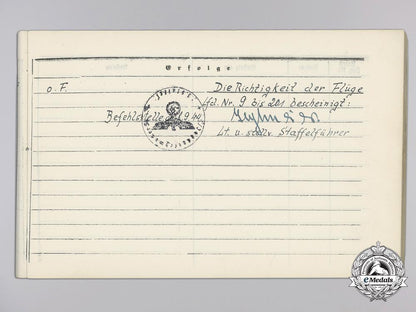 Erfolge
o. F. Die Richtigkeit der Flüge
lfd. Nr. 9 bis 201 bescheinigt:
Befehlsstelle 1944
Lt. u. stellv. Staffelführer
eMedals